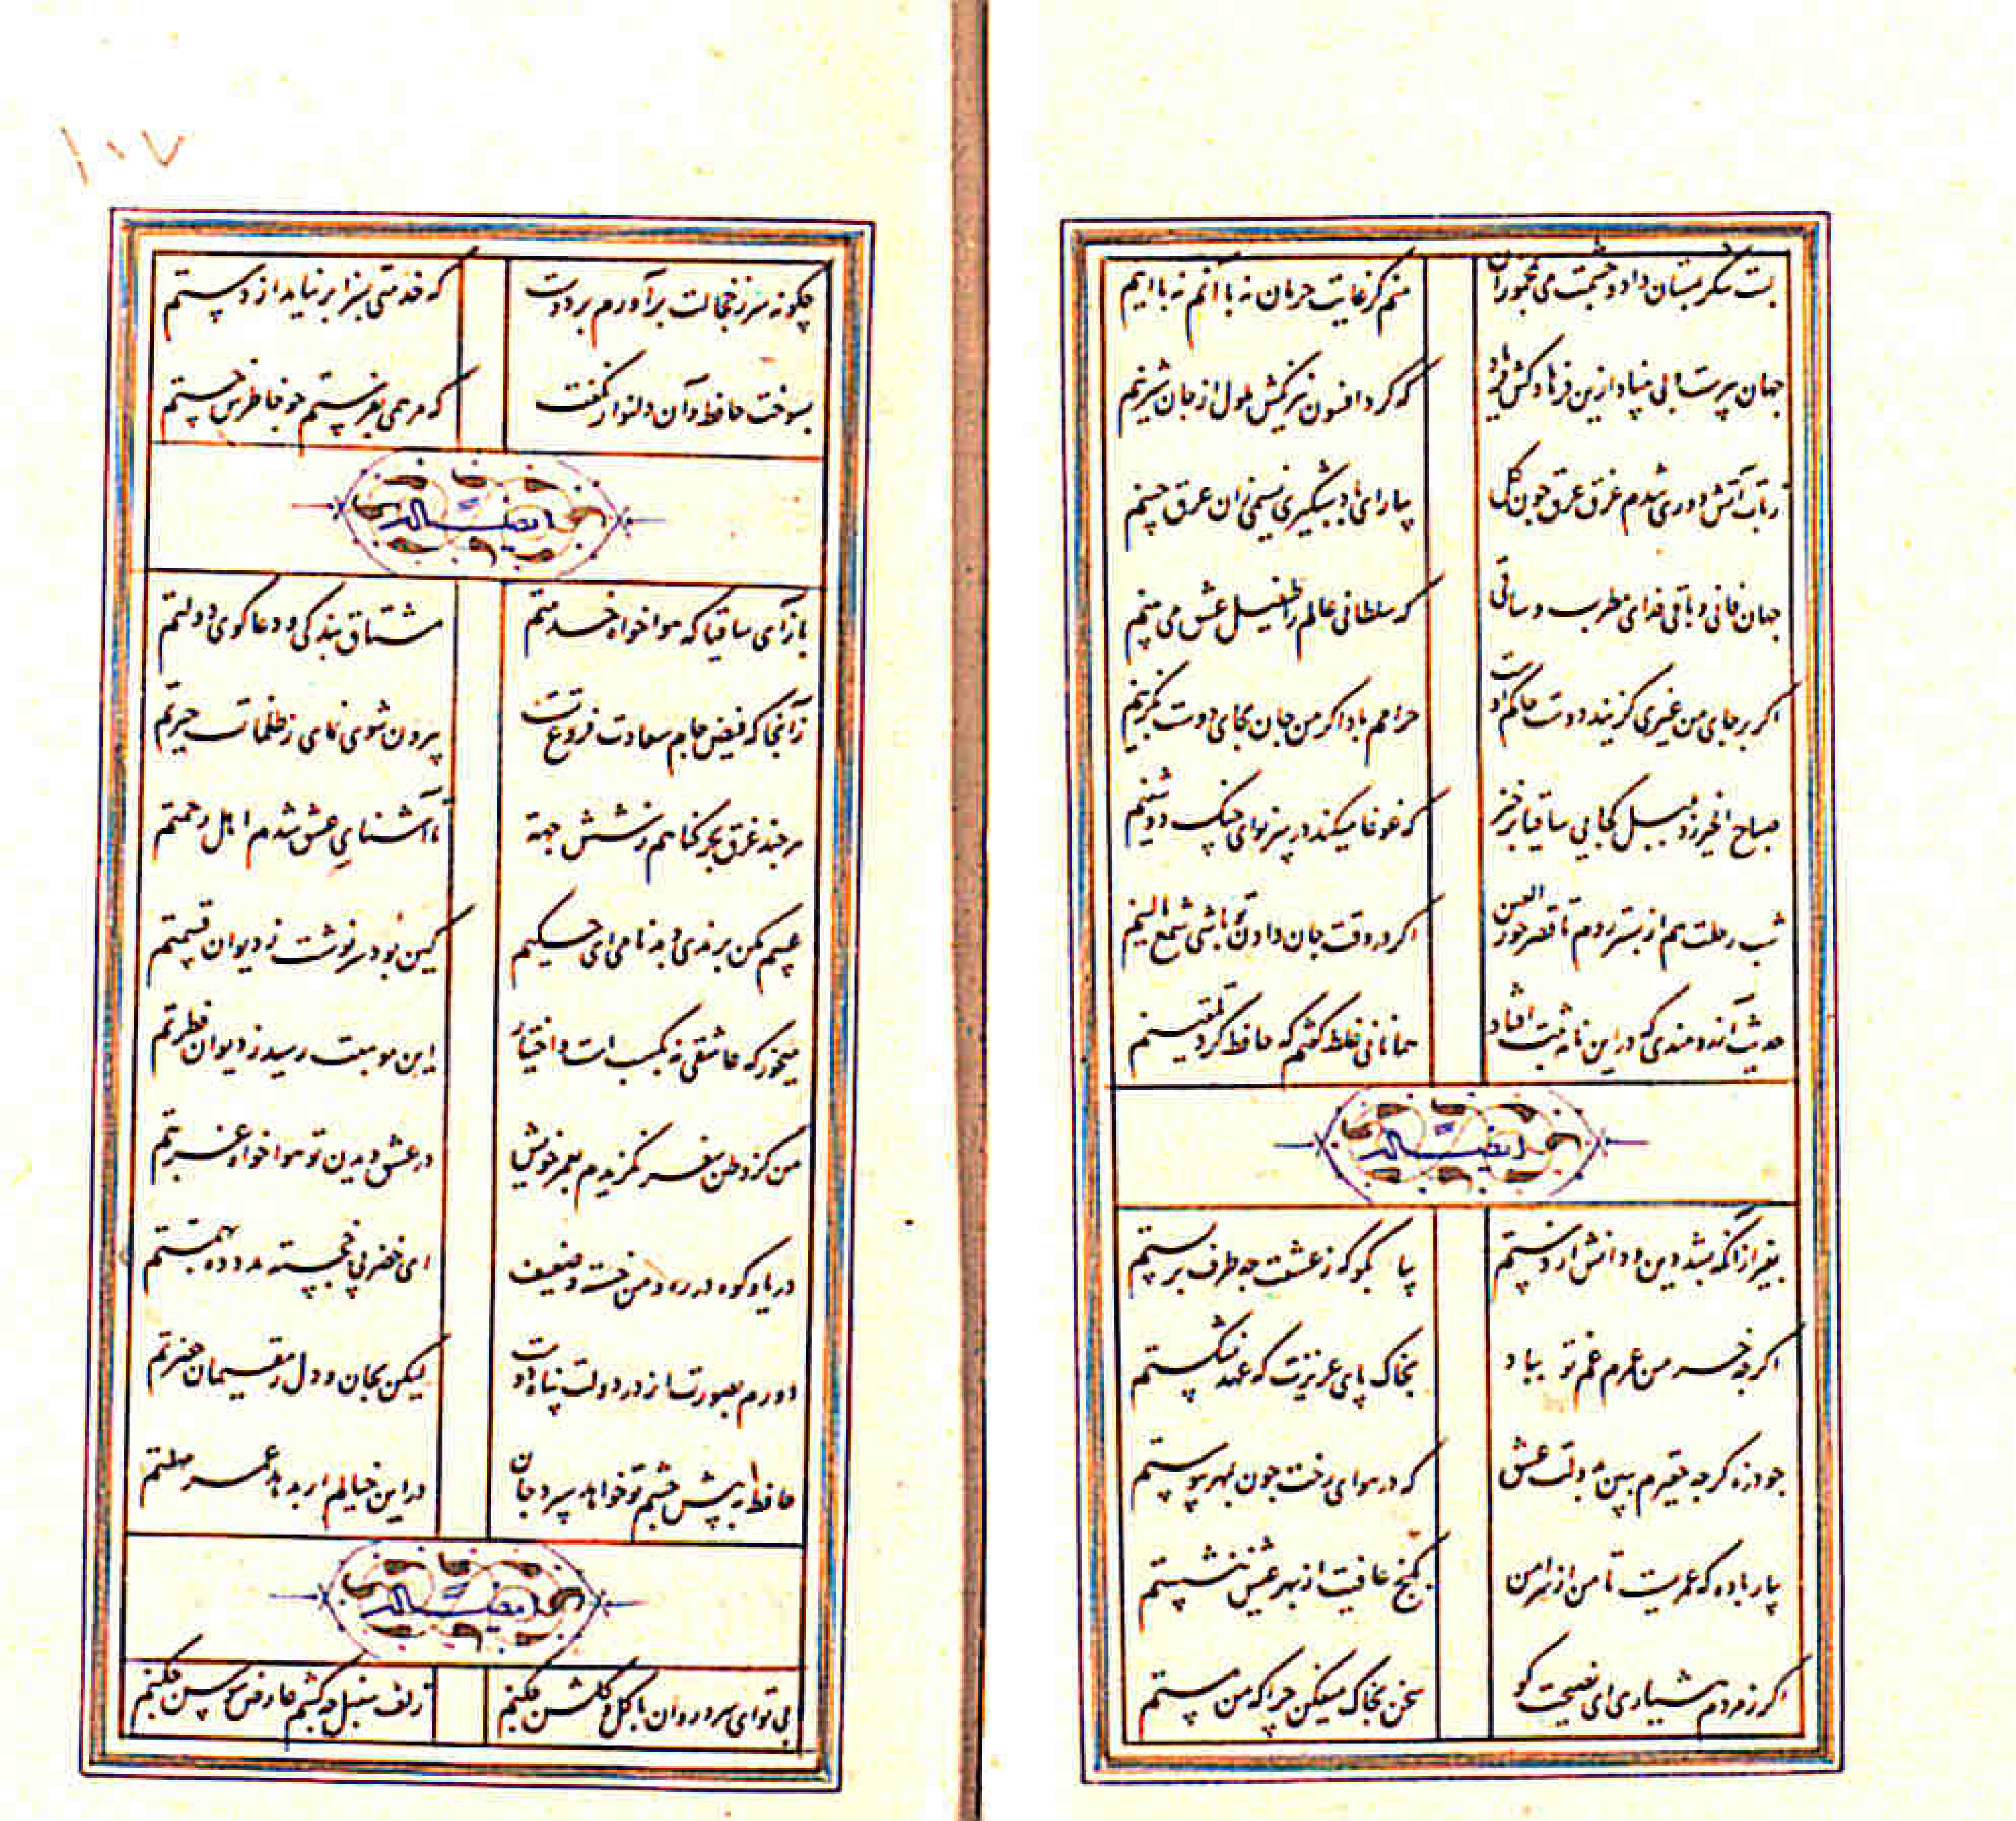 لبت شکر بمستان داد و چشمت می بمخموران
منم کز غایت حرمان نه با آنم نه با اینم
جهان پیرست و بی بنیاد ازین فرهادکش فریاد
که کرد افسون نیرنگش ملول از جان شیرینم
زتاب آتش دوری شدم غرق عرق چون گل
بیار ای باد شبگیری نسیمی زان عرق چینم
جهان فانی و باقی فدای مطرب و ساقی
که سلطانی عالم را طفیل عشق می بینم
اگر بر جای من غیری گزیند دوست حاکم اوست
حرامم باد اگر من جان بجای دوست بگزینم
صباح الخیر زد بلبل کجایی ساقیا برخیز
که غوغا میکند در سر نوای چنک دوشینم
شب رحلت هم از بستر روم تا قصر حور العین
اگر در وقت جان دادن تو باشی شمع بالینم
حدیث آرزومندی که در این نامه ثبت افتاد
همانا بی غلط گفتم که حافظ کرد تلقینم
وله ایضا
بغیر از آنکه بشد دین و دانش از دستم
بیا بگو که ز عشقت چه طرف بربستم
اگرچه خرمن عمرم غم تو بباد
بخاک پای عزیزت که عهد نشکستم
چو ذره گرچه حقیرم ببین بدولت عشق
که در هوای رخت چون بمهر پیوستم
بیار باده که عمریست تا من از سر امن
بکنج عافیت از بهر عیش ننشستم
اگر ز مردم هشیاری ای نصیحت گو
سخن بخاک میفکن چرا که من مستم
۱۰۷
چگونه سر ز خجالت برآورم بر دوست
که خدمتی بسزا برنیاید از دستم
بسوخت حافظ و آن دلنواز نگفت
که مرهمی بفرستم چو خاطرش خستم
وله ایضا
بازآی ساقیا که هواخواه خدمتم
مشتاق بندگی و دعاگوی دولتم
زآنجا که فیض جام سعادت فروغ تست
بیرون شوی نمای ز ظلمات حیرتم
هرچند غرق بحر گناهم ز شش جهه
تا آشنای عشق شدم اهل رحمتم
عیبم مکن برندی و بدنامی ای حکیم
کین بود سرنوشت ز دیوان قسمتم
میخور که عاشقی نه بکسب است و اختیار
این موهبت رسید ز دیوان فطرتم
من کز وطن سفر نگزیدم بعمر خویش
در عشق دیدن تو هواخواه غربتم
دریا و کوه در ره و من خسته و ضعیف
ای خضر پی خجسته مدد ده بهمتم
دورم بصورت از در دولت پناه دوست
لیکن بجان و دل ز مقیمان حضرتم
حافظ به پیش چشم تو خواهد سپرد جان
در این خیالم ار بدهد عمر مهلتم
وله ایضا
بی تو ای سرو روان با گل و گلشن چکنم
زلف سنبل چه کشم عارض سوسن چکنم